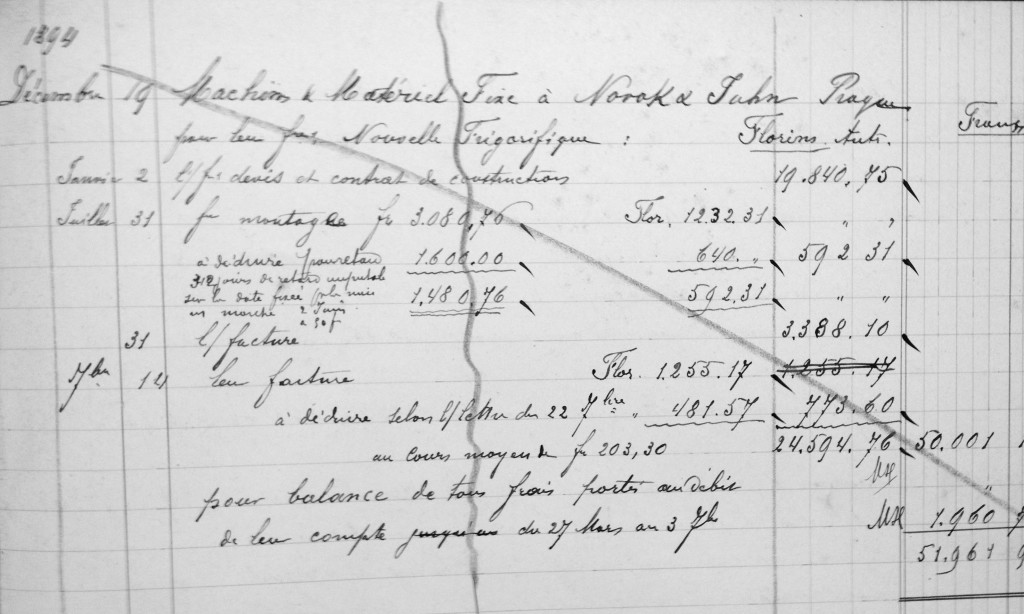 1894
Décembre 19 Machines & Matériel Fixe à Novak & Jahn Prague
pour leur fre Nouvelle Frigorifique : Florins Autr. Francs
Janvier 2 l/fre devis et contrat de constructions 19.840.75
Juillet 31 fre montage fr 3.080,76 Flor. 1232.31 " "
à déduire pour retard 1.600.00 640. " 592 31
jours de retard imputab
sur la date fixée 1,480,76 592.31 " "
au marché 2 Jours
à 50 f
31 l/facture 3.388.10
7bre 14 leur facture Flor. 1.255.17 1.255.17
à déduire selon l/lettre du 22 7bre " 481.57 773.60
au cours moyen de fr 203,30 24.594.76 50.001 1
"
pour balance de tous frais portés au débit
de leur compte jusqu'au du 27 Mars au 3 7bre 1.960
51.961 9